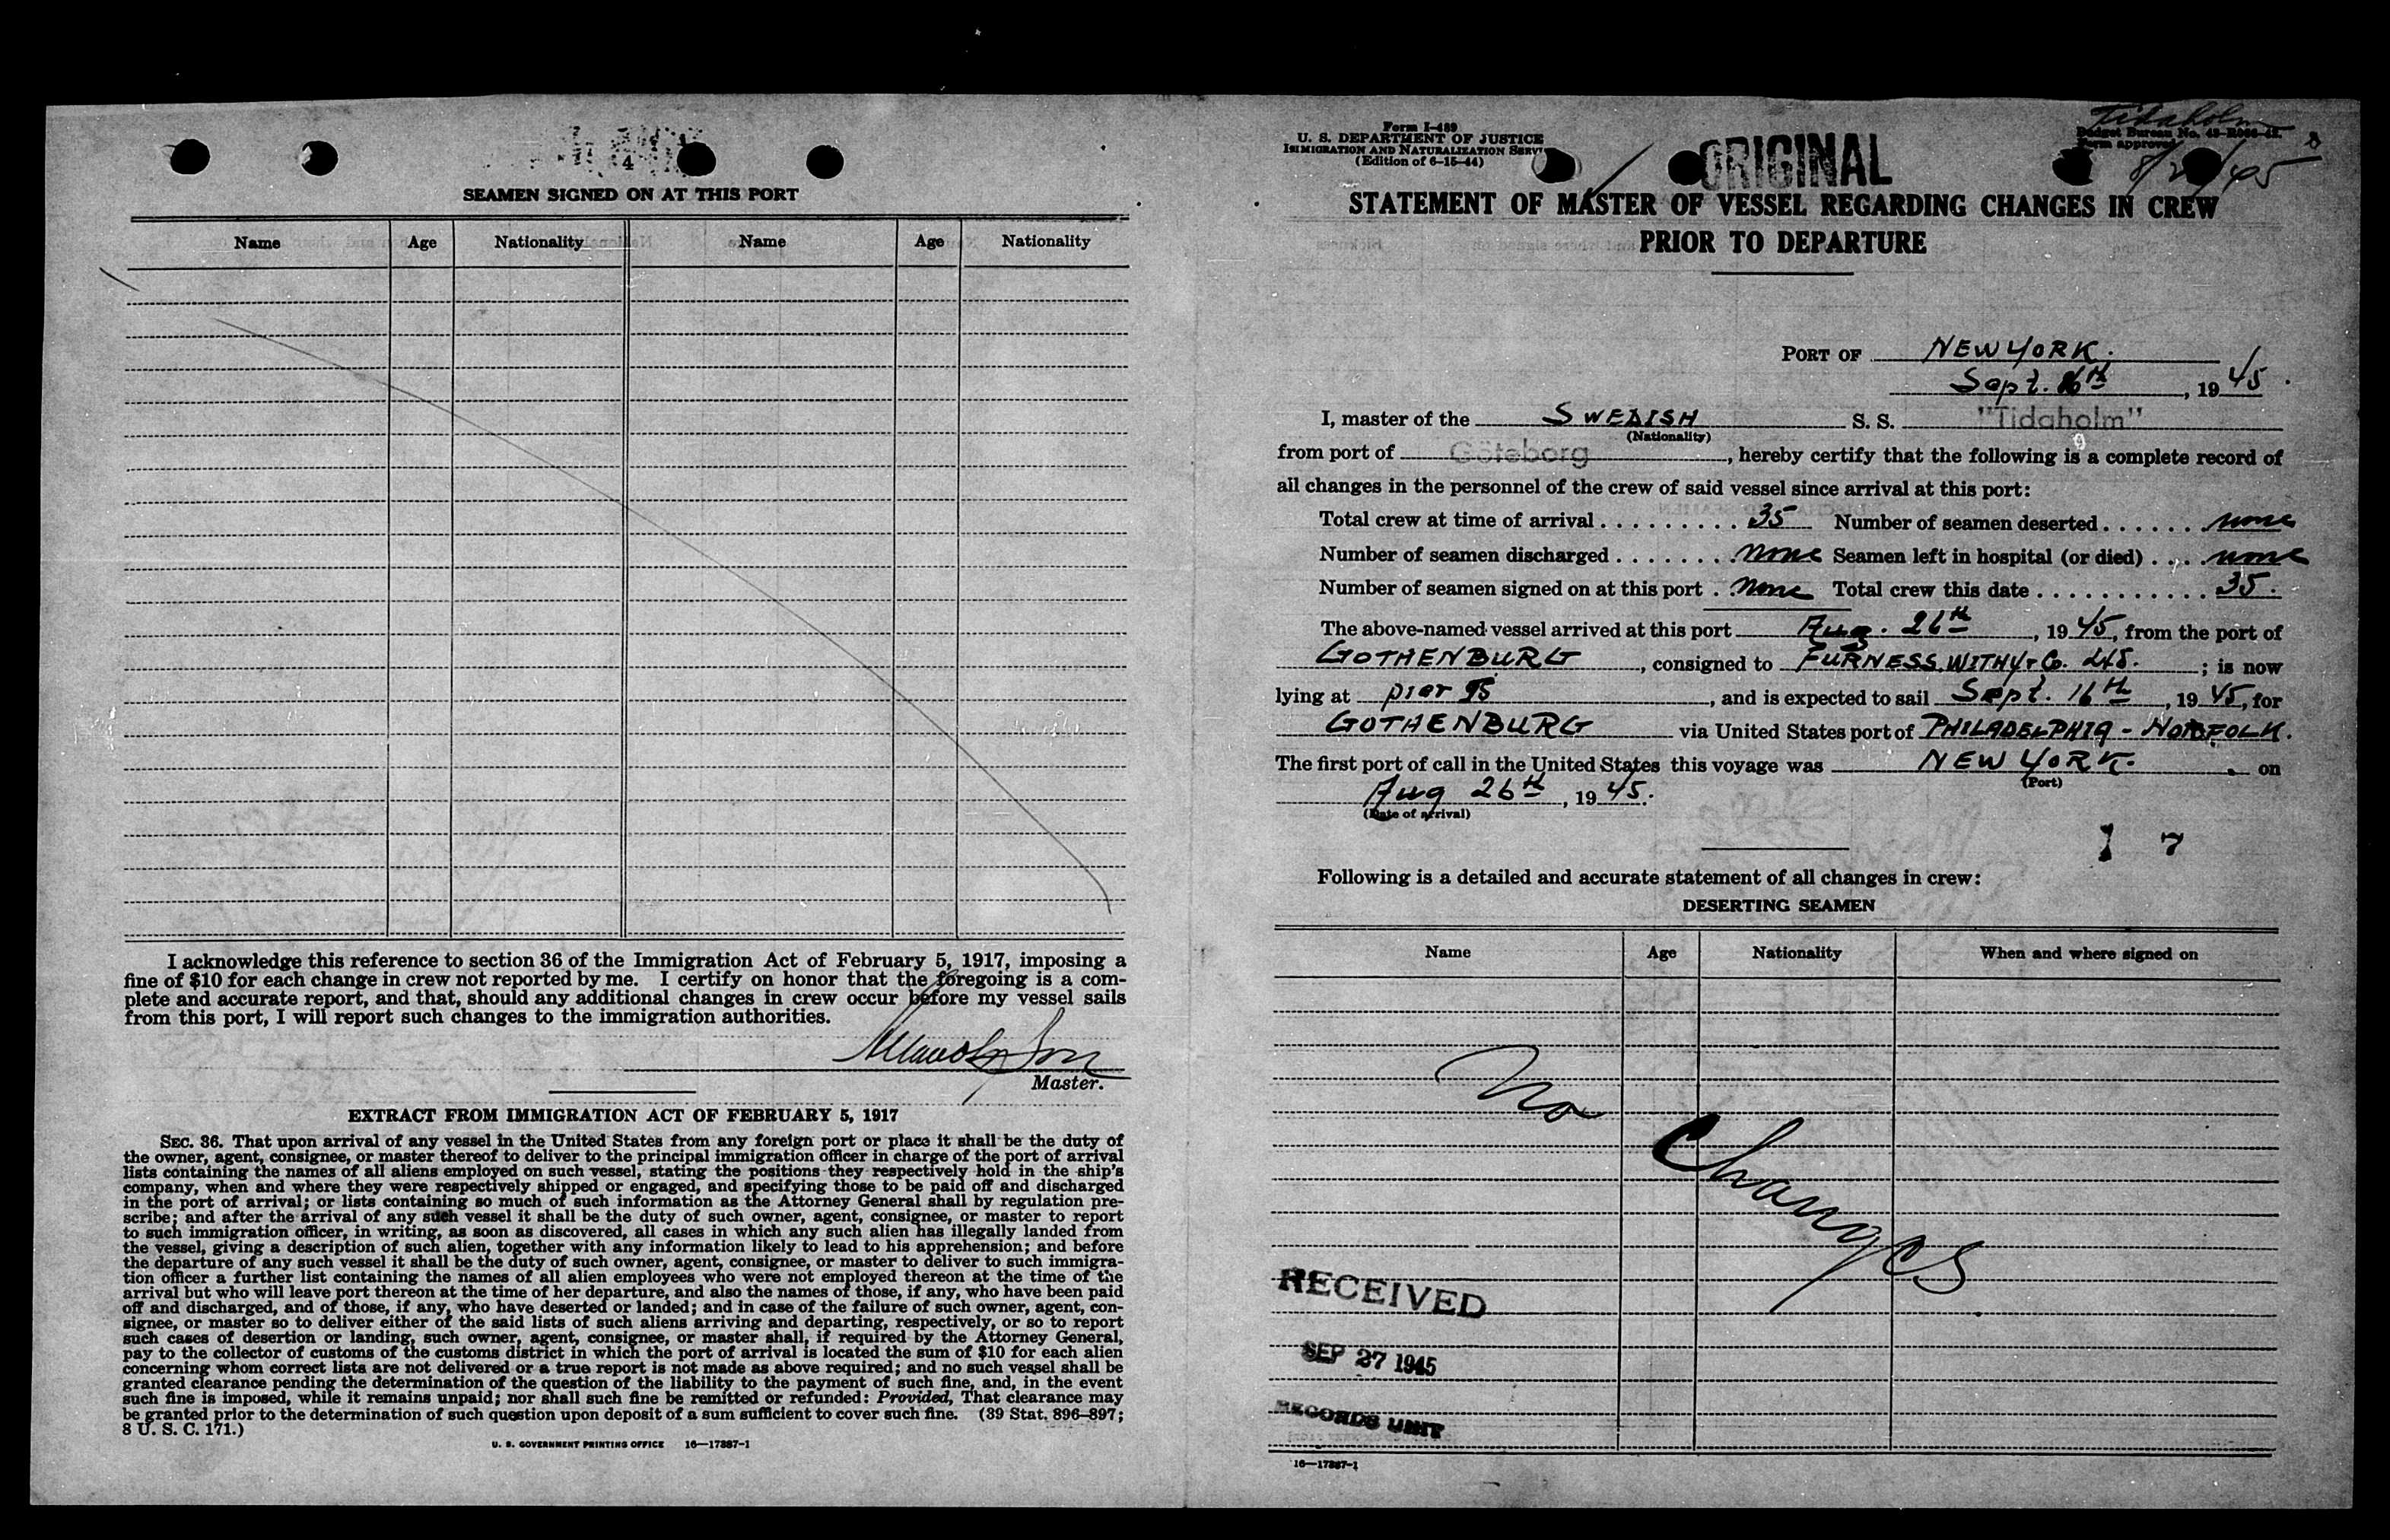 SEAMEN SIGNED ON AT THIS PORT
Name Age Nationality Name Age Nationality
I acknowledge this reference to section 36 of the Immigration Act of February 5, 1917, imposing a
fine of $10 for each change in crew not reported by me. I certify on honor that the foregoing is a com-
plete and accurate report, and that, should any additional changes in crew occur before my vessel sails
from this port, I will report such changes to the immigration authorities.
Master.
EXTRACT FROM IMMIGRATION ACT OF FEBRUARY 5, 1917
SEC. 36. That upon arrival of any vessel in the United States from any foreign port or place it shall be the duty of
the owner, agent, consignee, or master thereof to deliver to the principal immigration officer in charge of the port of arrival
lists containing the names of all aliens employed on such vessel, stating the positions they respectively hold in the ship's
company, when and where they were respectively shipped or engaged, and specifying those to be paid off and discharged
in the port of arrival; or lists containing so much of such information as the Attorney General shall by regulation pre-
scribe; and after the arrival of any such vessel it shall be the duty of such owner, agent, consignee, or master to report
to such immigration officer, in writing, as soon as discovered, all cases in which any such alien has illegally landed from
the vessel, giving a description of such alien, together with any information likely to lead to his apprehension; and before
the departure of any such vessel it shall be the duty of such owner, agent, consignee, or master to deliver to such immigra-
tion officer a further list containing the names of all alien employees who were not employed thereon at the time of the
arrival but who will leave port thereon at the time of her departure, and also the names of those, if any, who have been paid
off and discharged, and of those, if any, who have deserted or landed; and in case of the failure of such owner, agent, con-
signee, or master so to deliver either of the said lists of such aliens arriving and departing, respectively, or so to report
such cases of desertion or landing, such owner, agent, consignee, or master shall, if required by the Attorney General,
pay to the collector of customs of the customs district in which the port of arrival is located the sum of $10 for each alien
concerning whom correct lists are not delivered or a true report is not made as above required; and no such vessel shall be
granted clearance pending the determination of the question of the liability to the payment of such fine, and, in the event
such fine is imposed, while it remains unpaid; nor shall such fine be remitted or refunded: Provided, That clearance may
be granted prior to the determination of such question upon deposit of a sum sufficient to cover such fine. (39 Stat. 896–897;
8 U. S. C. 171.)
U. S. GOVERNMENT PRINTING OFFICE 16—17387-1
Tidaholm
Form I-489
U. S. DEPARTMENT OF JUSTICE
IMMIGRATION AND NATURALIZATION SERV
(Edition of 6-15-44)
ORIGINAL
Budget Bureau No.
Form approved
STATEMENT OF MASTER OF VESSEL REGARDING CHANGES IN CREW
PRIOR TO DEPARTURE
PORT OF NEW YORK.
Sept. 16th, 1945.
I, master of the SWEDISH S. S. "Tidaholm"
(Nationality)
from port of Göteborg, hereby certify that the following is a complete record of
all changes in the personnel of the crew of said vessel since arrival at this port:
Total crew at time of arrival 35 Number of seamen deserted none
Number of seamen discharged none Seamen left in hospital (or died) none
Number of seamen signed on at this port none Total crew this date 35.
The above-named vessel arrived at this port Aug. 26th, 1945, from the port of
GOTHENBURG, consigned to FURNESS, WITHY & Co. Ltd.; is now
lying at pier, and is expected to sail Sept. 16th, 1945, for
GOTHENBURG via United States port of PHILADELPHIA - NORFOLK.
The first port of call in the United States this voyage was NEW YORK. on
(Port)
Aug 26th, 1945.
(Date of arrival)
1 7
Following is a detailed and accurate statement of all changes in crew:
DESERTING SEAMEN
Name Age Nationality When and where signed on
No Changes
RECEIVED
SEP 27 1945
RECORDS UNIT
16—17387-1